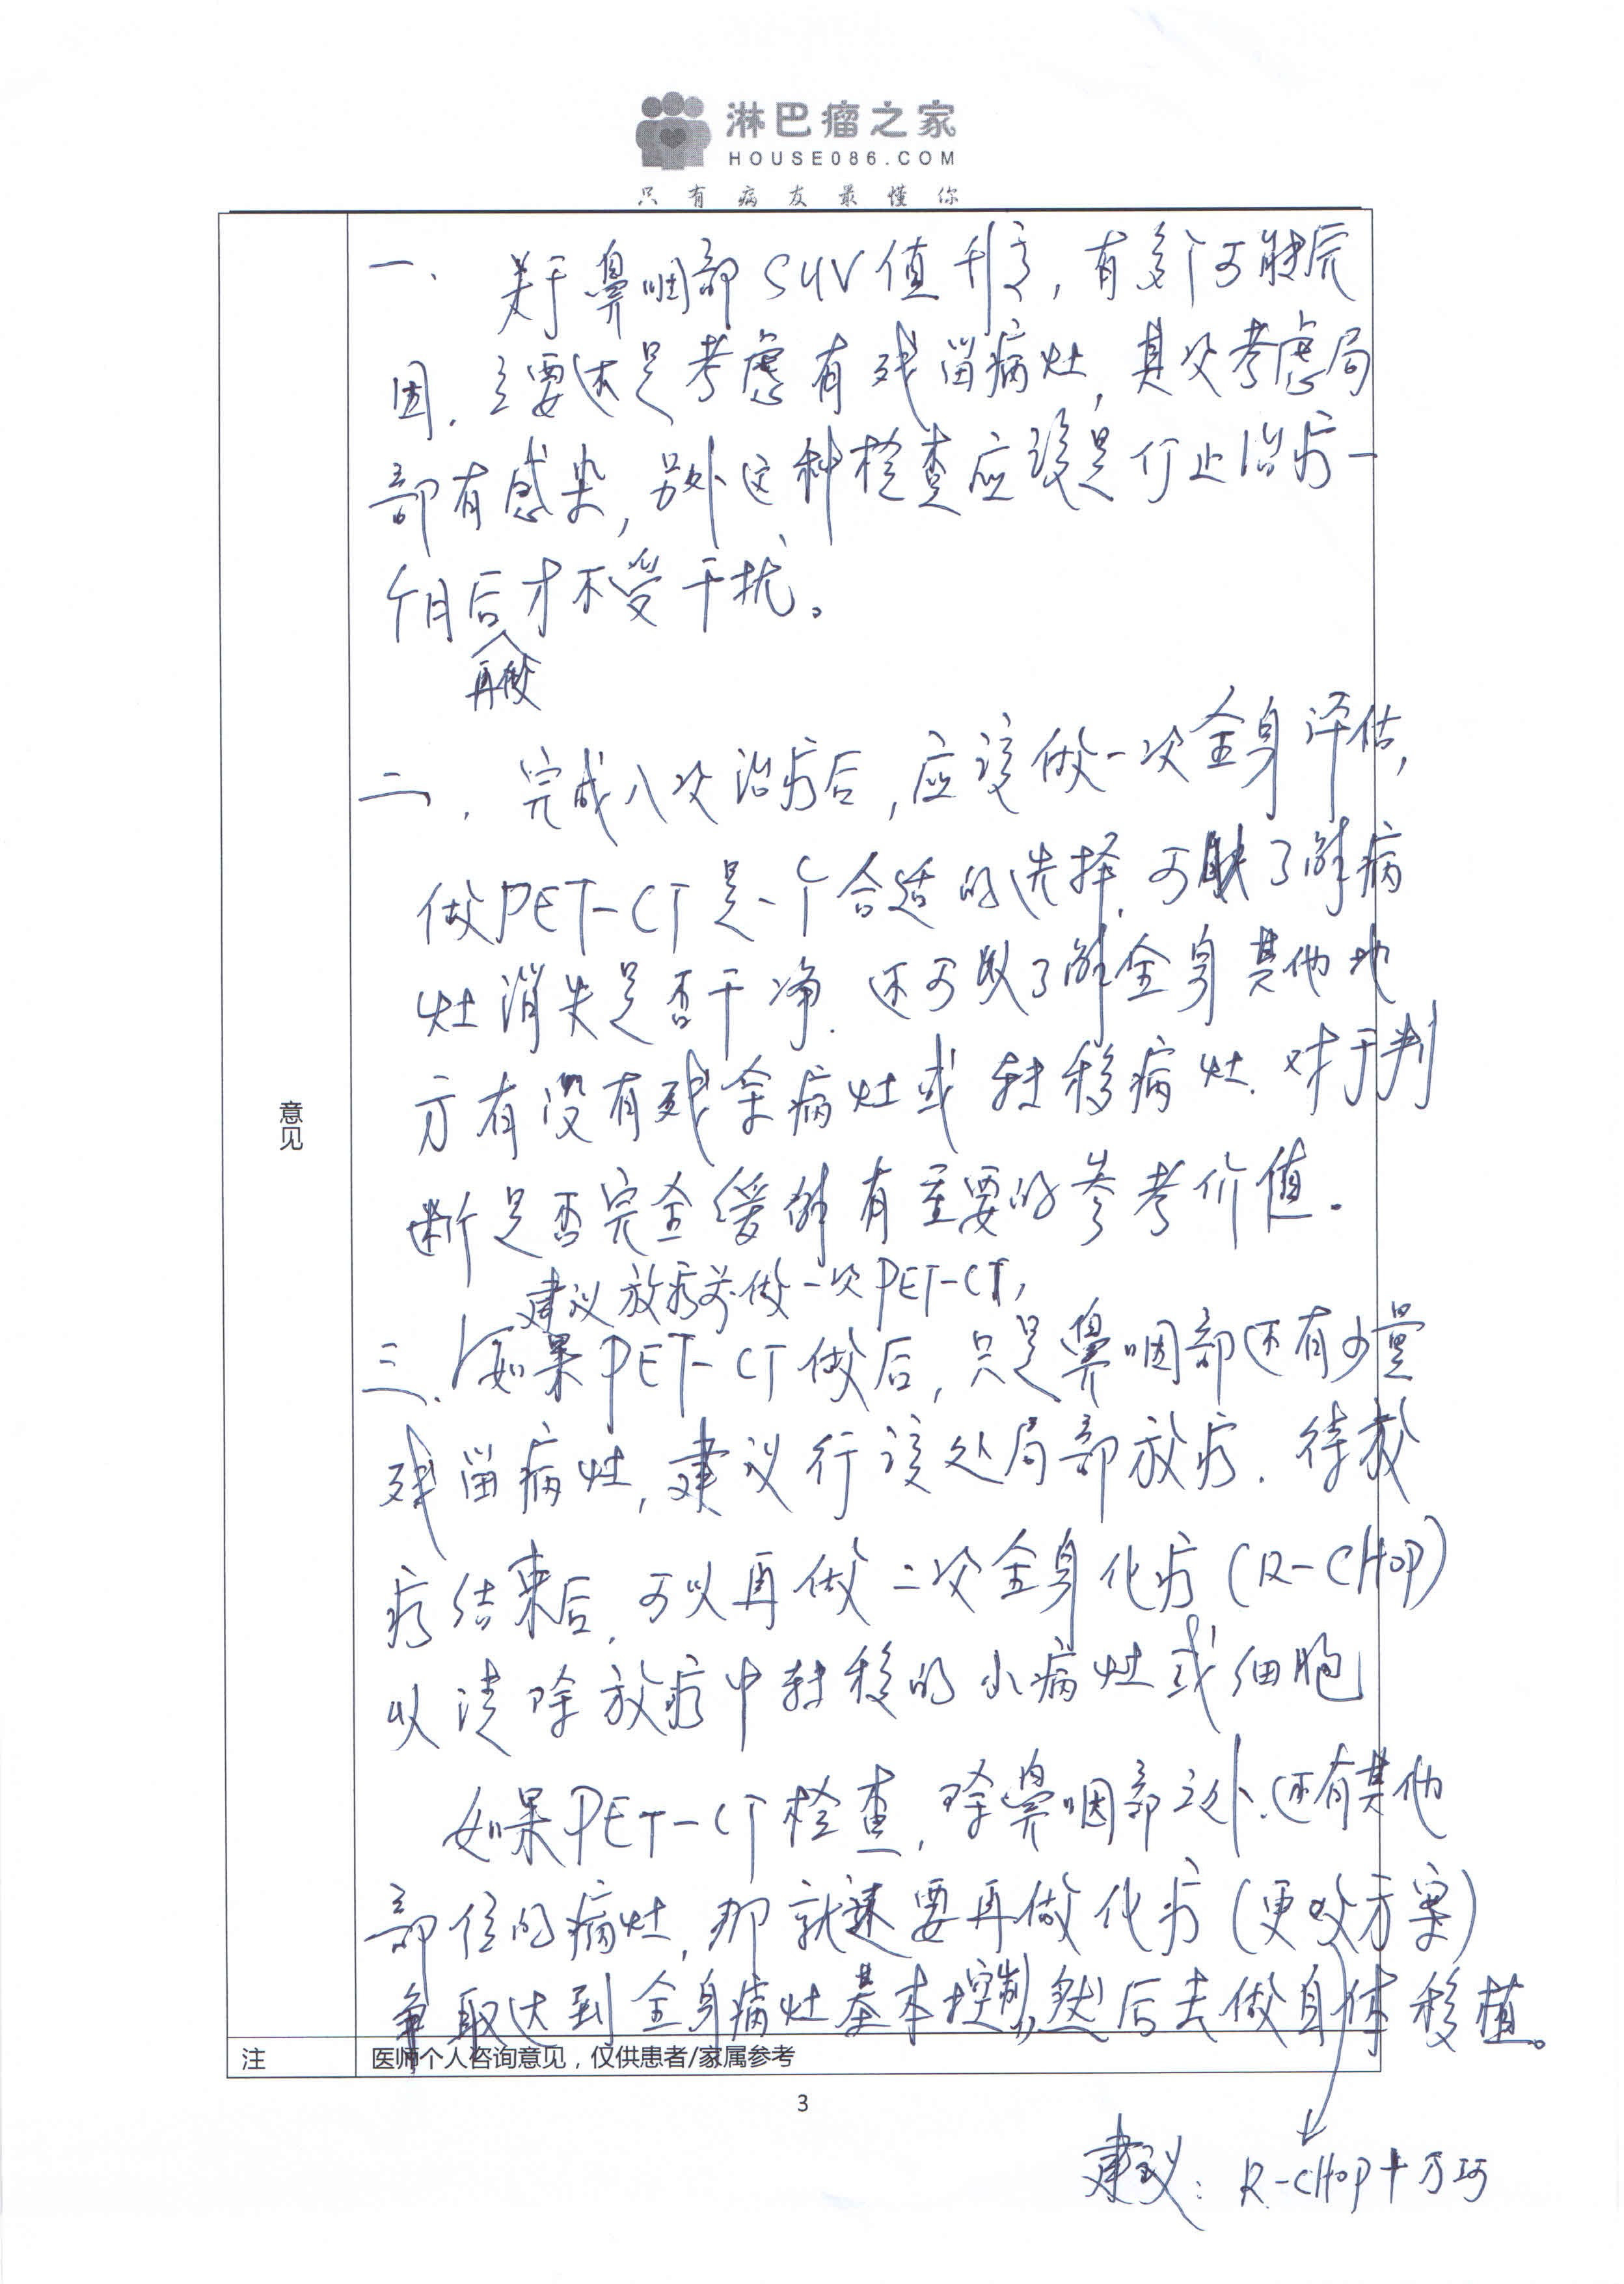 淋巴瘤之家
HOUSE086.COM
只有病友最懂你
一、关于鼻咽部SUV值升高,有多个可能原
因.主要还是考虑有残留病灶,其次考虑局
部有感染,另外这种检查应该是停止治疗一
个月后再做才不受干扰。
二.完成八次治疗后,应该做一次全身评估,
做PET-CT是一个合适的选择.可以了解病
灶消失是否干净.还可以了解全身其他地
方有没有残余病灶或转移病灶.对于判
断是否完全缓解有重要的参考价值.
建议放疗前做一次PET-CT,
三.如果PET-CT做后,只是鼻咽部还有少量
残留病灶,建议行该处局部放疗.待放
疗结束后,可以再做二次全身化疗(R-CHOP)
以清除放疗中转移的小病灶或细胞
如果PET-CT检查,除鼻咽部之外,还有其他
部位的病灶,那就要再做化疗(更改方案)
争取达到全身病灶基本控制,然后去做自体移植。
意见
注
医师个人咨询意见,仅供患者/家属参考
3
建议:R-CHOP+万珂